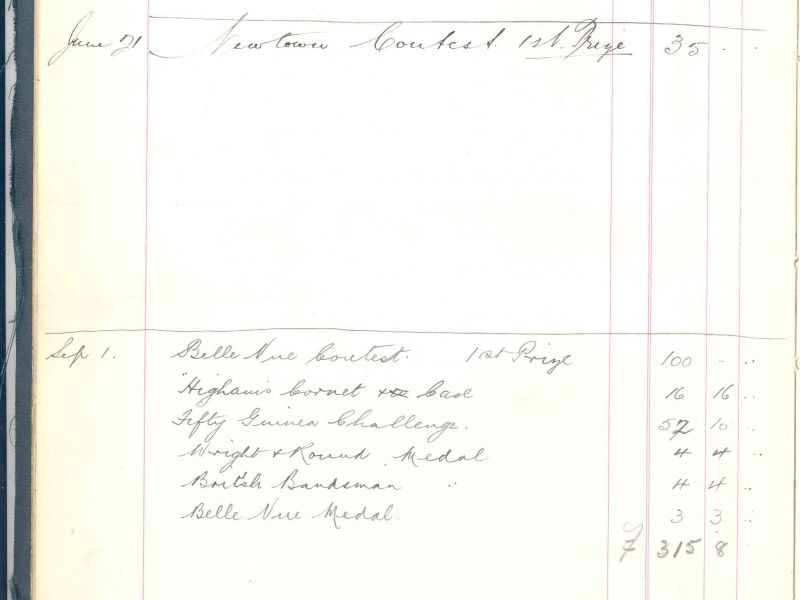 June 21 Newtown Contest. 1st. Prize 35 . .
Sep 1. Belle Vue Contest. 1st Prize 100 .. ..
"Higham's Cornet & Case 16 16 ..
Fifty Guinea Challenge. 52 10 ..
Wright & Round Medal 4 4 ..
British Bandsman " 4 4 ..
Belle Vue Medal. 3 3 ..
315 8